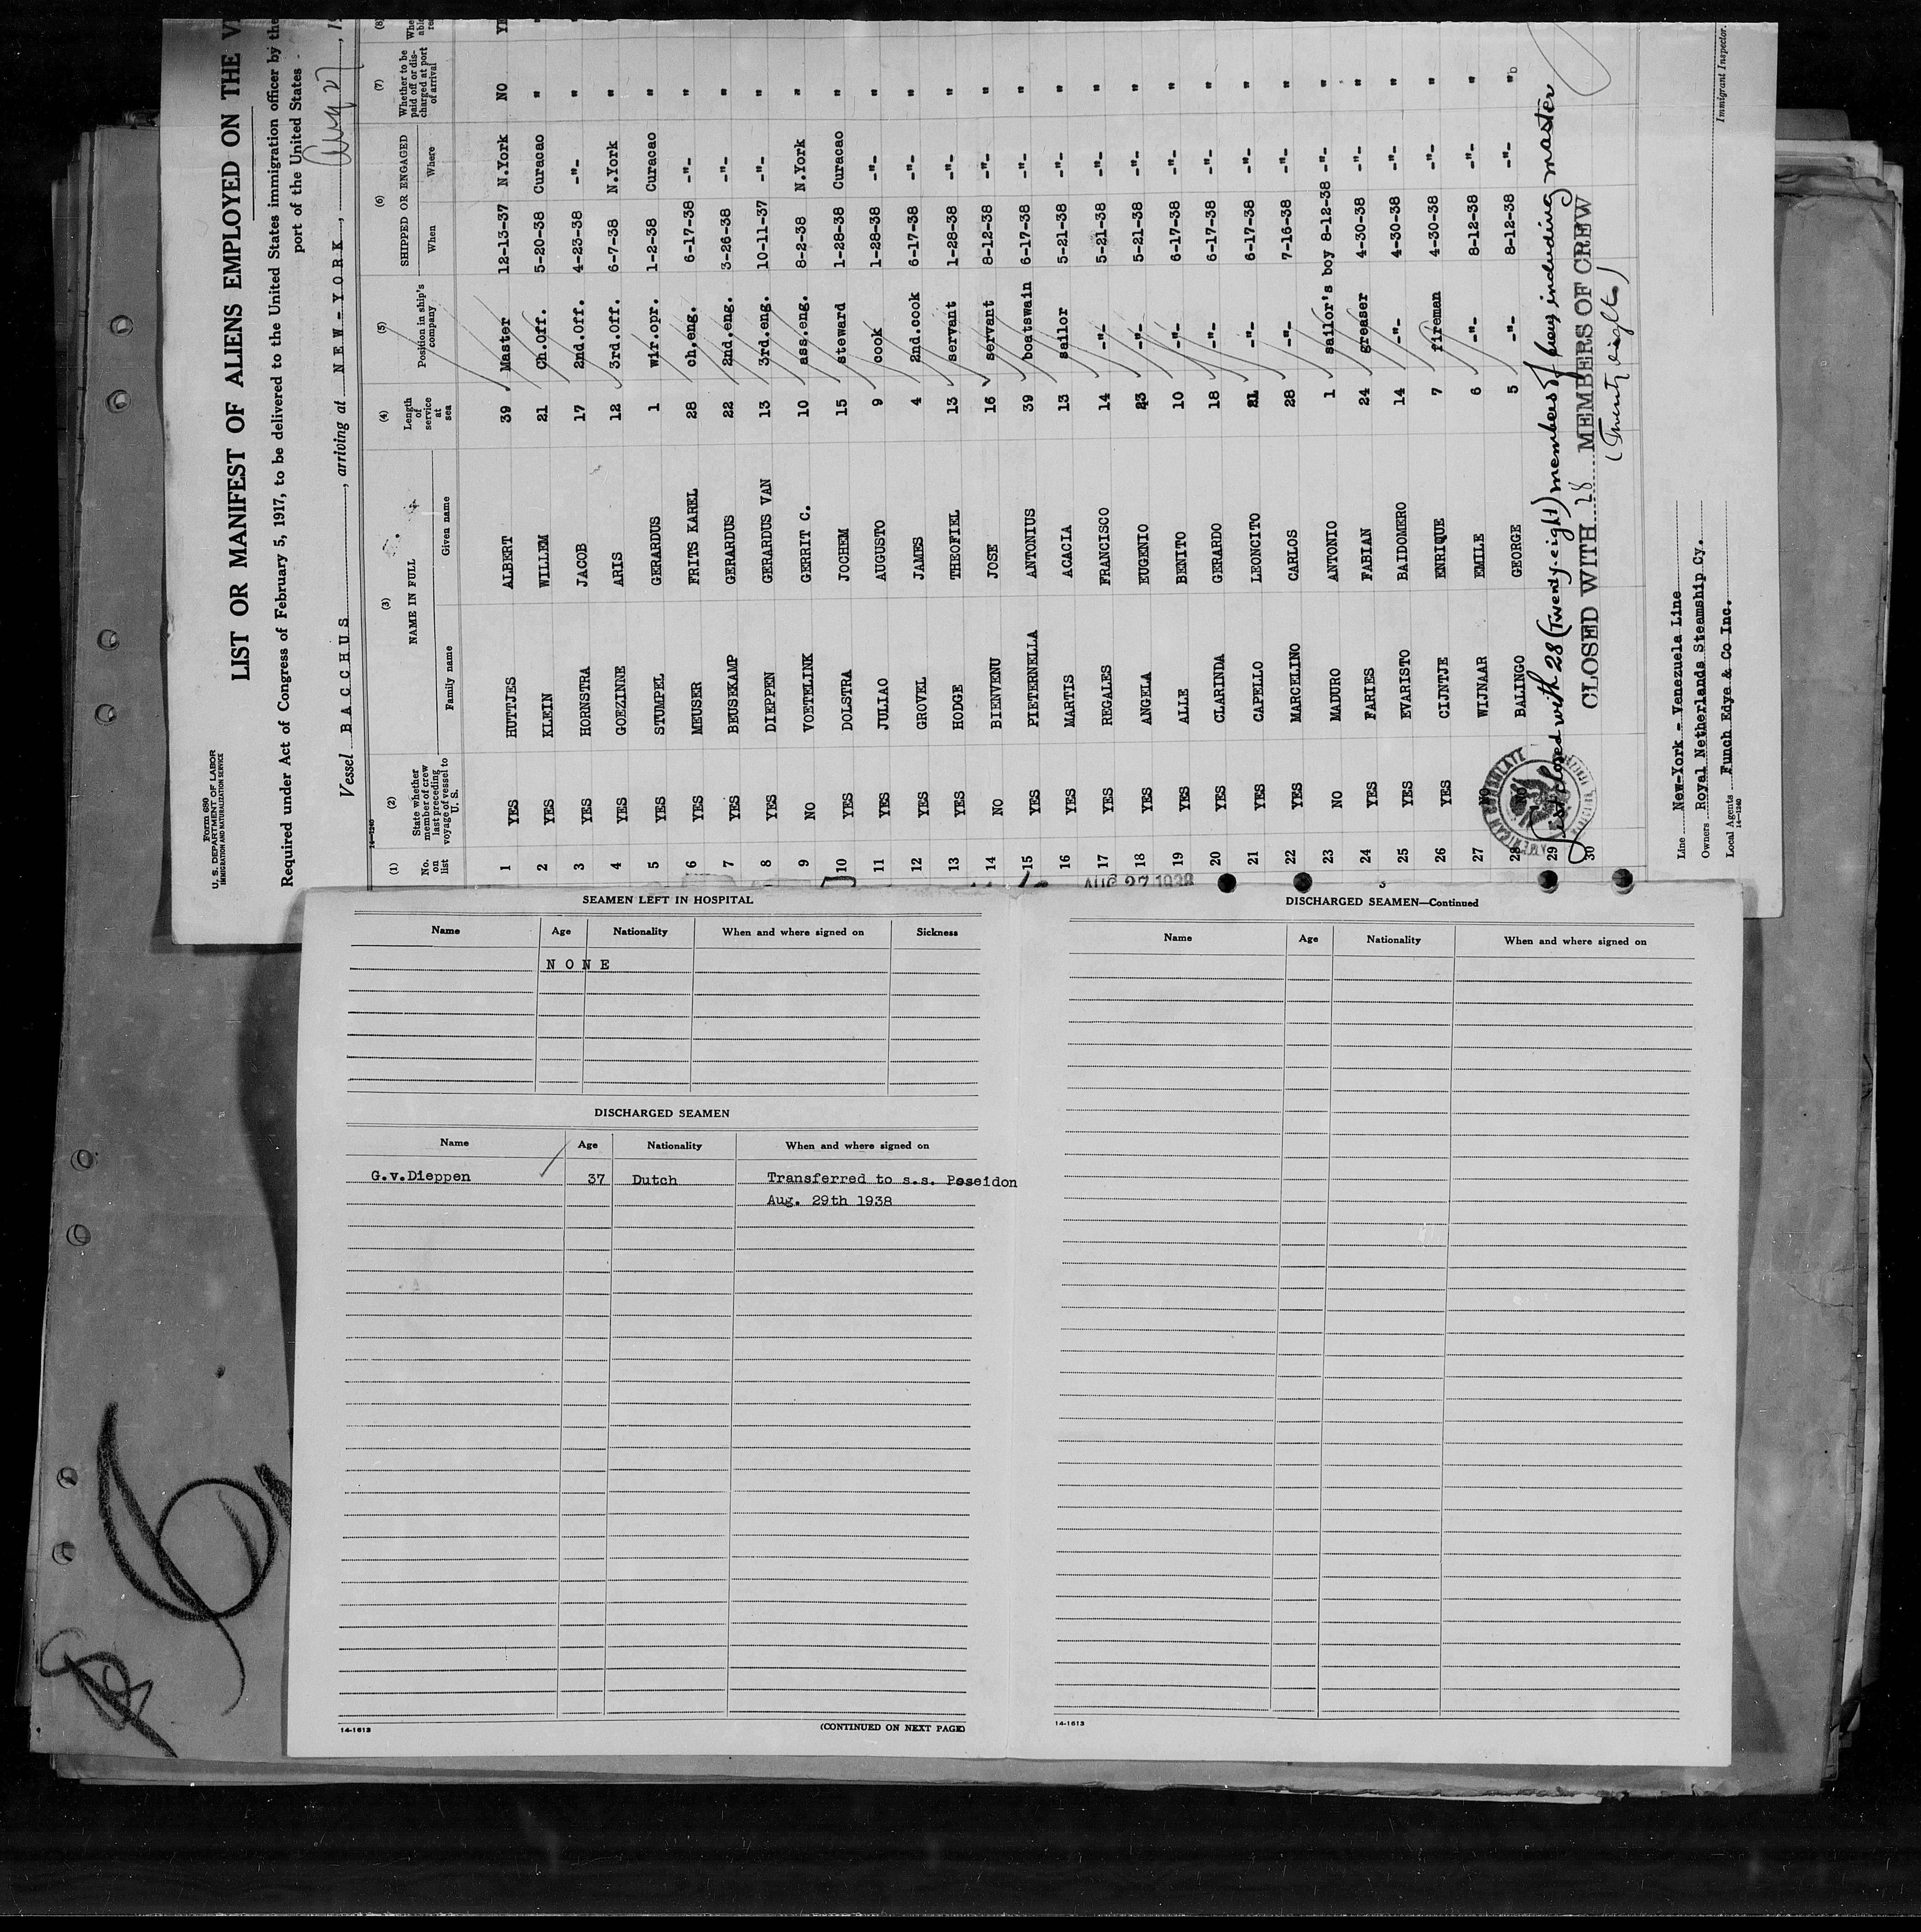 Form 680
U. S. DEPARTMENT OF LABOR
IMMIGRATION AND NATURALIZATION SERVICE
LIST OR MANIFEST OF ALIENS EMPLOYED ON THE
Required under Act of Congress of February 5, 1917, to be delivered to the United States immigration officer by the
port of the United States
Vessel BACCHUS, arriving at NEW-YORK, Aug 27, 19
14-1240
(1) (2) (3) (4) (5) (6) (7) (8)
No. on list State whether member of crew last preceding voyage of vessel to U. S. NAME IN FULL Family name Given name Length of service at sea Position in ship's company SHIPPED OR ENGAGED When Where Whether to be paid off or discharged at port of arrival
1 YES HUTTJES ALBERT 39 Master 12-13-37 N.York NO
2 YES KLEIN WILLEM 21 Ch.Off. 5-20-38 Curacao "
3 YES HORNSTRA JACOB 17 2nd.Off. 4-23-38 -"- "
4 YES GOEZINNE ARIS 12 3rd.Off. 6-7-38 N.York "
5 YES STUMPEL GERARDUS 1 wir.opr. 1-2-38 Curacao "
6 YES MEUSER FRITS KAREL 28 ch.eng. 6-17-38 -"- "
7 YES BEUSEKAMP GERARDUS 22 2nd.eng. 3-26-38 -"- "
8 YES DIEPPEN GERARDUS VAN 13 3rd.eng. 10-11-37 -"- "
9 NO VOETELINK GERRIT C. 10 ass.eng. 8-2-38 N.York "
10 YES DOLSTRA JOCHEM 15 steward 1-28-38 Curacao "
11 YES JULIAO AUGUSTO 9 cook 1-28-38 -"- "
12 YES GROVEL JAMES 4 2nd.cook 6-17-38 -"- "
13 YES HODGE THEOFIEL 13 servant 1-28-38 -"- "
14 NO BIENVENU JOSE 16 servant 8-12-38 -"- "
15 YES PIETERNELLA ANTONIUS 39 boatswain 6-17-38 -"- "
16 YES MARTIS ACACIA 13 sailor 5-21-38 -"- "
17 YES REGALES FRANCISCO 14 -"- 5-21-38 -"- "
18 YES ANGELA EUGENIO 23 -"- 5-21-38 -"- "
19 YES ALLE BENITO 10 -"- 6-17-38 -"- "
20 YES CLARINDA GERARDO 18 -"- 6-17-38 -"- "
21 YES CAPELLO LEONCITO 21 -"- 6-17-38 -"- "
22 YES MARCELINO CARLOS 28 -"- 7-16-38 -"- "
23 NO MADURO ANTONIO 1 sailor's boy 8-12-38 -"- "
24 YES FARIES FABIAN 24 greaser 4-30-38 -"- "
25 YES EVARISTO BAIDOMERO 14 -"- 4-30-38 -"- "
26 YES CIJNTJE ENRIQUE 7 fireman 4-30-38 -"- "
27 NO WIJNAAR EMILE 6 -"- 8-12-38 -"- "
28 NO BALINGO GEORGE 5 -"- 8-12-38 -"- "
29 closed with 28 (Twenty-eight) members of crew including master
30 CLOSED WITH 28 MEMBERS OF CREW
(Twenty eight)
AMERICAN CONSULATE
Line New-York - Venezuela Line
Owners Royal Netherlands Steamship Cy.
Local Agents Funch Edye & Co Inc.
14-1240
Immigrant Inspector.
AUG 27 1938
3
SEAMEN LEFT IN HOSPITAL
Name Age Nationality When and where signed on Sickness
NONE
DISCHARGED SEAMEN
Name Age Nationality When and where signed on
G.v.Dieppen 37 Dutch Transferred to s.s. Poseidon
Aug. 29th 1938
14-1613
(CONTINUED ON NEXT PAGE)
DISCHARGED SEAMEN—Continued
Name Age Nationality When and where signed on
14-1613